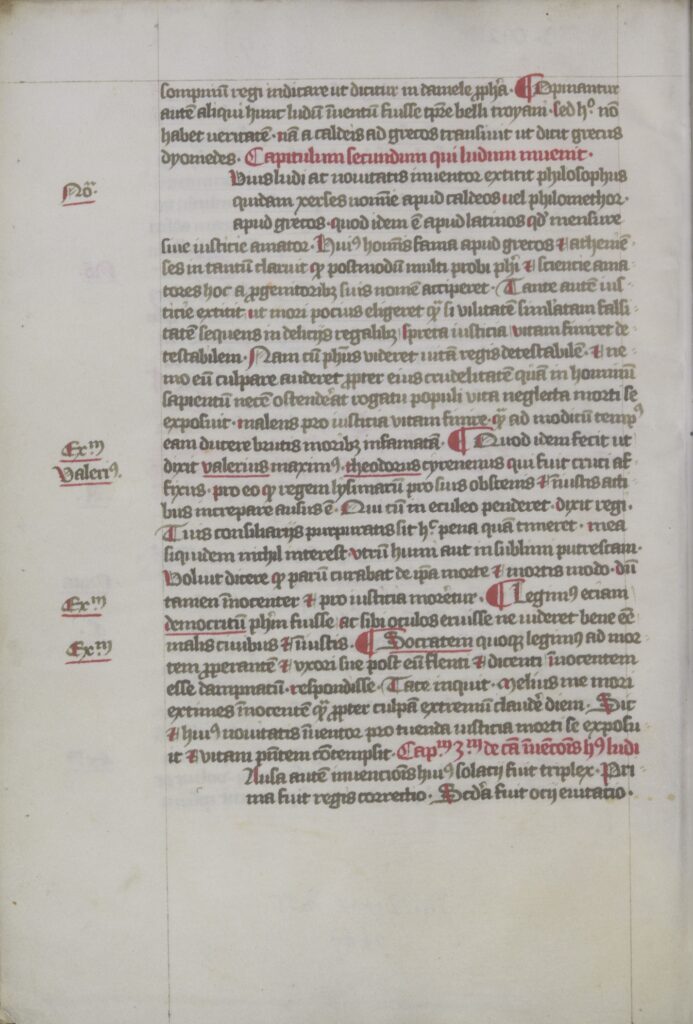 sompniū regi indicare ut dicitur in daniele ꝓph̄a · ¶ Opinantur
autē aliqui hunc ludū īuentū fuisse tp̄re belli troyani · sed hº nō
habet veritatē · nā a caldeis ad grecos transiuit ut dicit grecus
dyomedes · Capitulum secundum qui ludum inuenit ·
Nōª
Vius ludi at nouitatis inuentor extitit philosophus
quidam xerses nomīe apud caldeos uel philomethor ·
apud grecos · quod idem ē apud latinos qd' mensure
siue iusticie amator · Huiꝰ homīs fama apud grecos & atheniē
ses in tantū claruit qꝫ postmodū multi probi ph̄i & sciencie ama
tores hoc a ꝓgenitoribꝫ suis nomē acciperet · Tante autē ius
ticie extitit ut mori pocius eligeret qª si vilitatē similatam falsi
tatē sequens in delicijs regalibꝫ spreta iusticia vitam finiret de
testabilem · Nam cū ph̄us videret uitā regis detestabilē · & ne
mo eū culpare auderet ꝓpter eius crudelitatē quā in hominū
sapientū necē ostende'at rogatu populi vita neglecta morti se
exposuit · malens pro iusticia vitam finire · qª ad modicū tempꝰ
Exᵐ
eam ducere brutis moribꝫ infamatā · ¶ Quod idem fecit ut
Valeriꝰ ·
dixit valerius maximꝰ · theodorus cyrenenus qui fuit cruci af
fixus · pro eo qꝫ regem lysimacū pro suis obscenis & īiustis acti
bus increpare ausus ē · Qui cū in eculeo penderet · dixit regi ·
Tuis consiliarijs purpuratis sit hᶜ pena quā timeret · mea
siquidem nichil interest vtrū humi aut in sublimi putrescam ·
Voluit dicere qꝫ parū curabat de ip̄a morte & mortis modo · dū
Exᵐ
tamen īnocenter & pro iusticia moretur · ¶ Legimꝰ eciam
democritū ph̄m fuisse at sibi oculos eruisse ne uideret bene eē
Exᵐ
malis ciuibus & īiustis · ¶ Socratem quoqꝫ legimꝰ ad mor
tem ꝓperantē & vxori sue post eū flenti & dicenti īnocentem
esse dampnatū · respondisse · Tace inquit · Melius me mori
extimes īnocentē qª ꝓpter culpā extremū claude' diem · Sic
& huiꝰ nouitatis īuentor pro tuenda iusticia morti se exposu
it & vitam pn̄tem cōtempsit · Capᵐ 3ᵐ de cā īuēcōis hꝰ ludi
Ausa autem inuencionis huiꝰ solacij fuit triplex · Pri
ma fuit regis correctio · Scd̄a fuit ocij euitatio ·